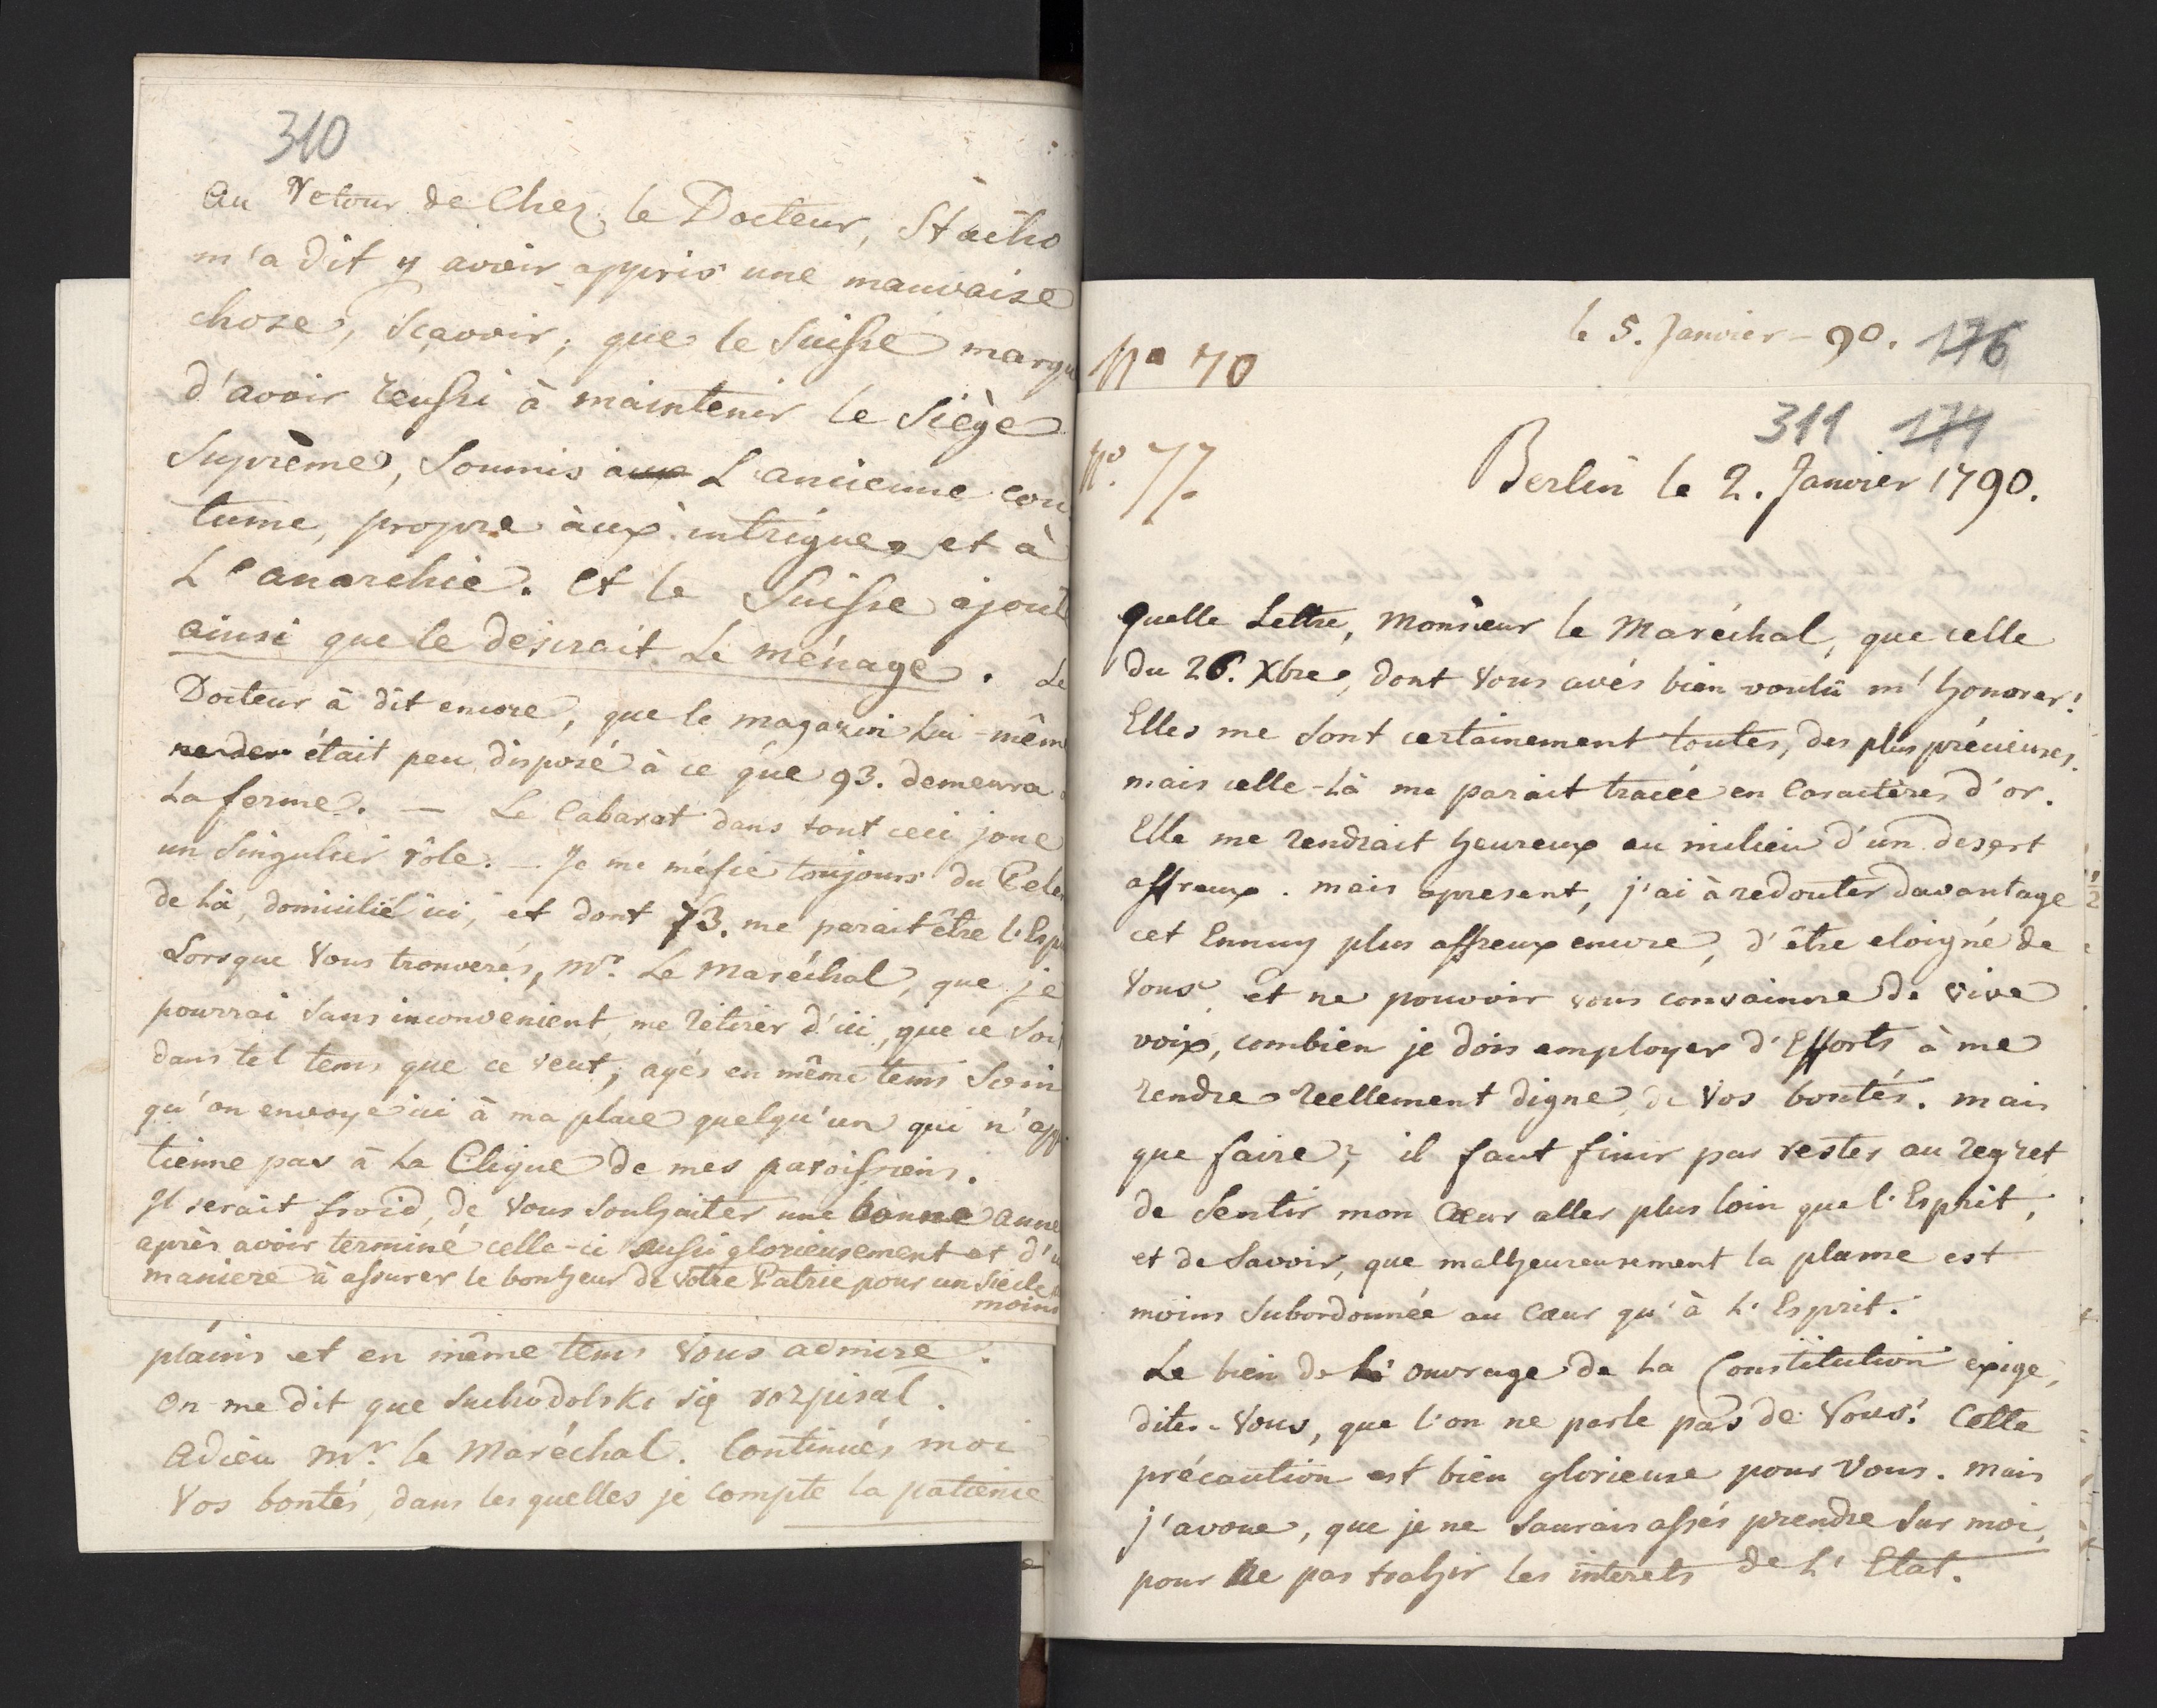 310
Au Retour de Chez le Docteur, Stacho
m'a dit y avoir appris une mauvaise
choze, Sçavoir; que le Suisse marque
d'avoir reussi à maintenir le Siège
Suprème, Soumis à L'ancienne cou
tume, propre àux intrigues et à
L'anarchie. Et le Suisse ajoute
ainsi que le desirait Le ménage. Le
Docteur à dit encore, que le magazin Lui-même
était peu disposé à ce que 93. demeura
La ferme. — Le Cabarat dans tout ceci joue
un Singulier rôle. — Je me méfie toujours du
de Là, domicilié ici, et dont 73. me parait être l'
Lorsque Vous trouverés, Mr. Le Maréchal, que je
pourrai Sans inconvenient me retirer d'ici, que ce Soit
dans tel tems que ce veut, ayés en même tems Soin
qu'on envoye ici à ma place quelqu'un qui n'app
tienne pas à La Clique de mes paroissiens.
Il serait froid, de Vous Souhaiter une bonne Anne
après avoir terminé celle-ci aussi glorieusement et d'u
maniere à assurer le bonheur de Votre Patrie pour un Siecle
moins
plains et en même tems Vous admire.
On me dit que Suchodolski się rozpisał.
Adieu Mr. le Maréchal. Continués moi
Vos bontés, dans lesquelles je Compte la patience
le 5. Janvier - 90. 176
No 70
311 174
No. 77.
Berlin le 2. Janvier 1790.
Quelle Lettre, Monsieur le Maréchal, que celle
du 26. Xbre, dont Vous avés bien voulû m'honorer!
Elles me Sont certainement toutes, des plus précieuses.
mais celle-Là me parait tracée en Caractères d'or.
Elle me rendrait heureux au milieu d'un desert
affreux. mais apresent, j'ai à redouter davantage
cet Ennuy plus affreux encore, d'être eloigné de
Vous et ne pouvoir vous convaincre de vive
voix, combien je dois employer d'Efforts à me
rendre reellement digne de Vos bontés. mais
que faire? il faut finir par rester au regret
de Sentir mon Cœur aller plus loin que l'Esprit,
et de Savoir, que malheureusement la plume est
moins Subordonnée au Cœur qu'à L'Esprit.
Le bien de L'ouvrage de La Constitution exige,
dites-Vous, que l'on ne parle pas de Vous! Cette
précaution est bien glorieuse pour Vous. Mais
j'avoue, que je ne Saurais assés prendre Sur moi,
pour ne pas trahir les interets de L'Etat.